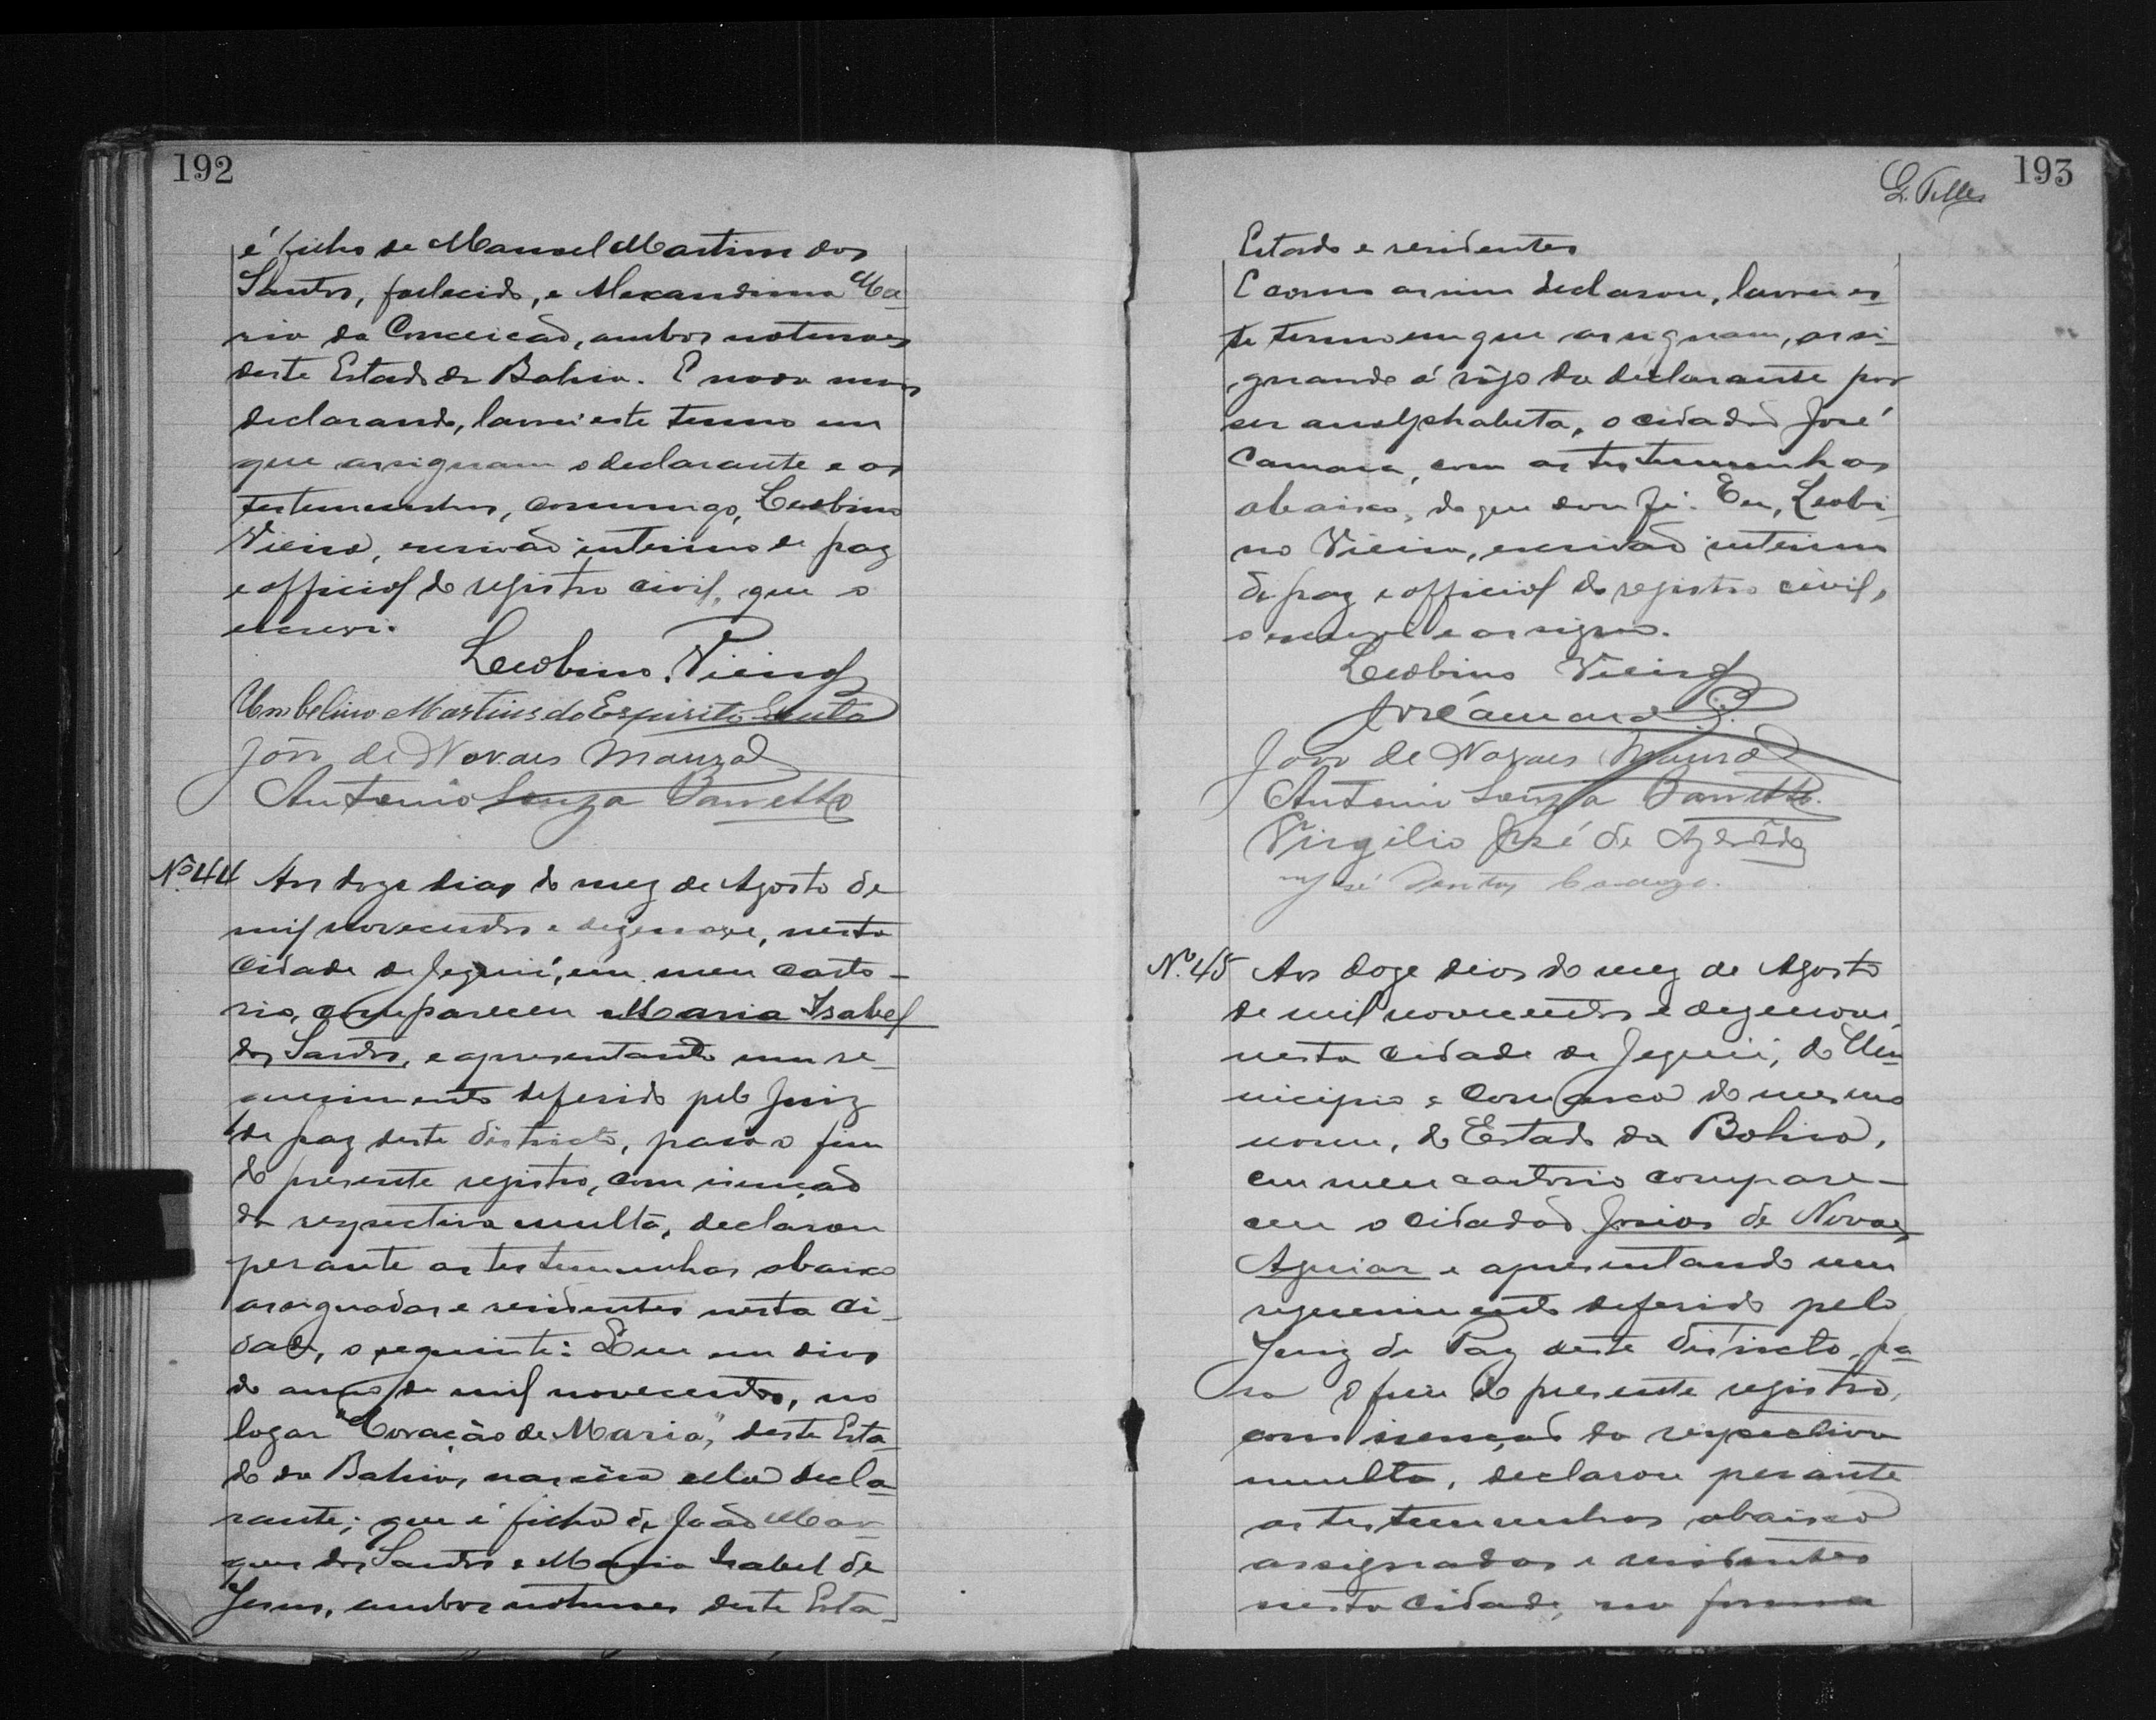 192
é filho de Manoel Martins dos
Santos, fallecido, e Alexandrina Ma-
ria da Conceicão, ambos naturaes
deste Estado da Bahia. E nada mais
declarando, lavrei este termo em
que assignam o declarante e as
testemunhas, commigo, Leobino
Vieira, escrivão interino de paz
e official do registro civil, que o
escrevi.
Leobino Vieira
Umbelino Martins do Espirito Santo
João de Novaes
Antonio Souza Barretto
Nº 44 Aos doze dias do mez de Agosto de
mil novecentos e dezenove, nesta
cidade de Jequié, em meu carto-
rio, compareceu Maria Isabel
dos Santos, e apresentando um re-
querimento deferido pelo Juiz
de paz deste districto, para o fim
do presente registro, com isenção
da respectiva multa, declarou
perante as testemunhas abaixo
assignadas e residentes nesta ci-
dade, o seguinte: Que em dias
do anno de mil novecentos, no
logar "Coração de Maria", deste Esta-
do da Bahia, nasceu ella decla-
rante; que é filha de João Mar-
ques dos Santos e Maria Isabel de
Jesus, ambos naturaes deste Esta-
193
G. Telles
Estado e residentes
E como assim declarou, lavrei es-
te termo em que assignam, assi-
gnando á rôgo da declarante por
ser analphabeta, o cidadão José
Camara, com as testemunhas
abaixo, do que dou fé. Eu, Leobi-
no Vieira, escrivão interino
de paz e official do registro civil,
o escrevi e assigno.
Leobino Vieira
José Camara
João de Novaes
Antonio Souza Barretto.
Virgilio José de Azevêdo
José Cardozo.
Nº 45 Aos doze dias do mez de Agosto
de mil novecentos e dezenove,
nesta cidade de Jequié, do Mu-
nicipio e Comarca do mesmo
nome, do Estado da Bahia,
em meu cartorio compare-
ceu o cidadão Josias de Novaes
Aguiar e apresentando um
requerimento deferido pelo
Juiz de Paz deste districto, pa-
ra o fim do presente registro,
com isenção da respectiva
multa, declarou perante
as testemunhas abaixo
assignadas e residentes
nesta cidade, na forma